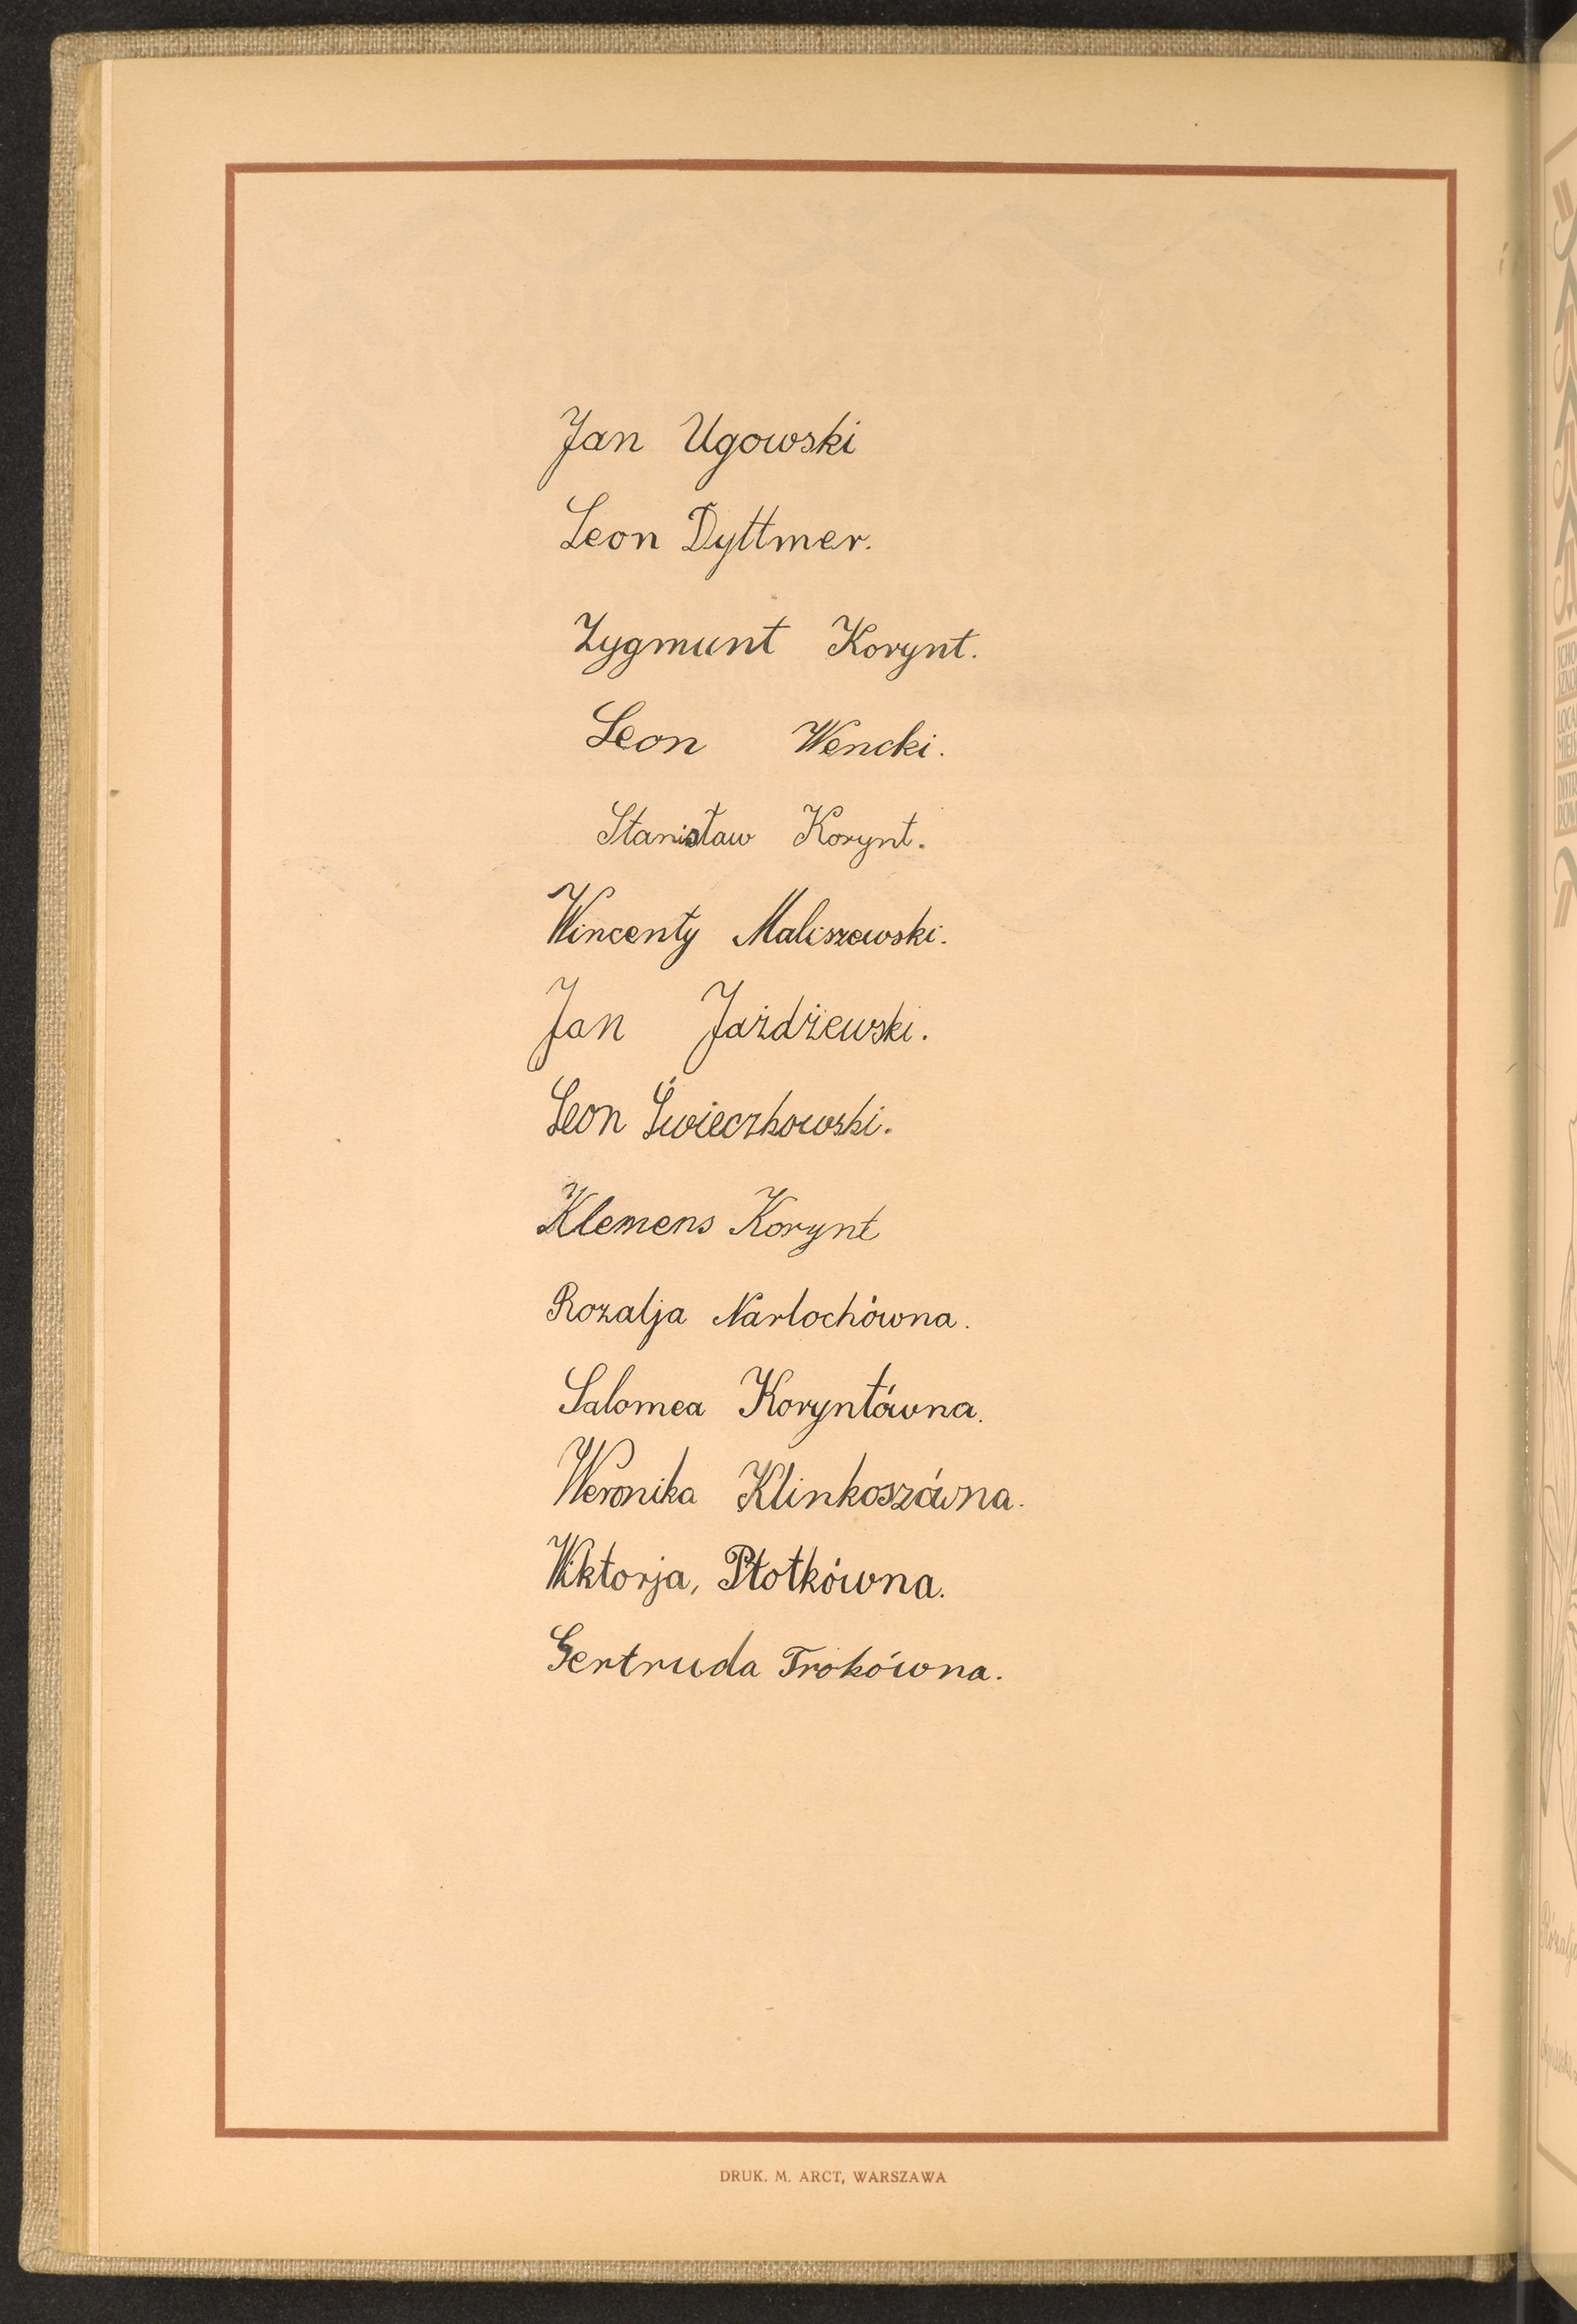 Jan Ugowski
Leon Dyttmer.
Zygmunt Korynt.
Leon Wencki.
Stanisław Korynt.
Wincenty Maliszewski.
Jan Jażdżewski.
Leon Świeczkowski.
Klemens Korynt
Rozalja Narlochówna.
Salomea Koryntówna.
Weronika Klinkoszówna.
Wiktorja, Płotkówna.
Gertruda Trokówna.
DRUK. M. ARCT, WARSZAWA